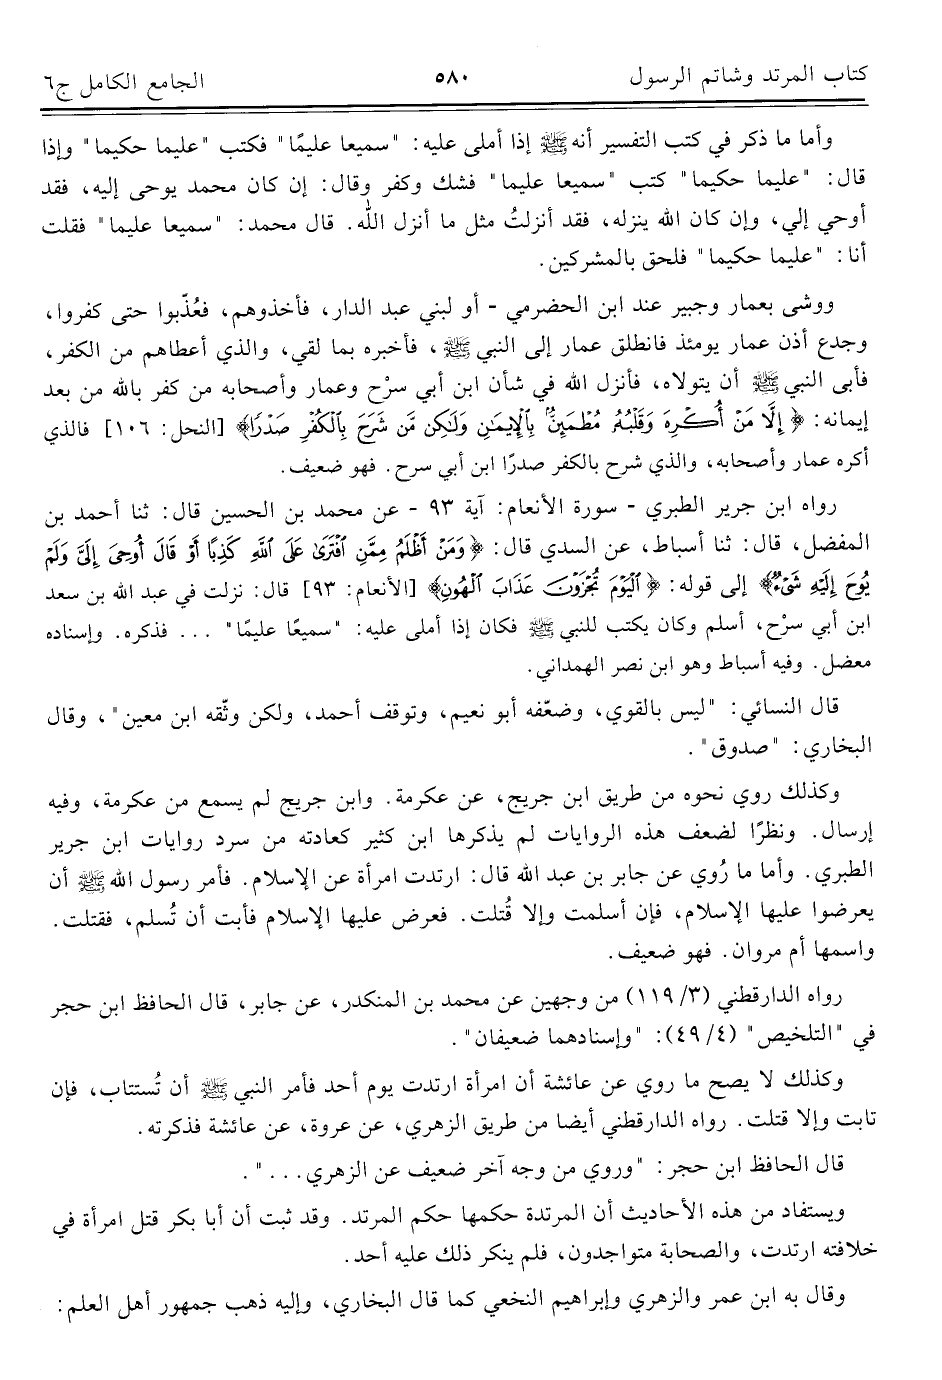 كتاب المرتد وشاتم الرسول ٥٨٠ الجامع الكامل ج٦
وأما ما ذكر في كتب التفسير أنه ﷺ إذا أملى عليه: "سميعا عليمًا" فكتب "عليما حكيما" وإذا
قال: "عليما حكيما" كتب "سميعا عليما" فشك وكفر وقال: إن كان محمد يوحى إليه، فقد
أوحي إلي، وإن كان الله ينزله، فقد أنزلتُ مثل ما أنزل الله. قال محمد: "سميعا عليما" فقلت
أنا: "عليما حكيما" فلحق بالمشركين.
ووشى بعمار وجبير عند ابن الحضرمي - أو لبني عبد الدار، فأخذوهم، فعُذّبوا حتى كفروا،
وجدع أذن عمار يومئذ فانطلق عمار إلى النبي ﷺ، فأخبره بما لقي، والذي أعطاهم من الكفر،
فأبى النبي ﷺ أن يتولاه، فأنزل الله في شأن ابن أبي سرْح وعمار وأصحابه من كفر بالله من بعد
إيمانه: ﴿إِلَّا مَنْ أُكْرِهَ وَقَلْبُهُۥ مُطْمَئِنٌّۢ بِٱلْإِيمَٰنِ وَلَٰكِن مَّن شَرَحَ بِٱلْكُفْرِ صَدْرًا﴾ [النحل: ١٠٦] فالذي
أكره عمار وأصحابه، والذي شرح بالكفر صدرًا ابن أبي سرح. فهو ضعيف.
رواه ابن جرير الطبري - سورة الأنعام: آية ٩٣ - عن محمد بن الحسين قال: ثنا أحمد بن
المفضل، قال: ثنا أسباط، عن السدي قال: ﴿وَمَنْ أَظْلَمُ مِمَّنِ ٱفْتَرَىٰ عَلَى ٱللَّهِ كَذِبًا أَوْ قَالَ أُوحِىَ إِلَىَّ وَلَمْ
يُوحَ إِلَيْهِ شَىْءٌ﴾ إلى قوله: ﴿ٱلْيَوْمَ تُجْزَوْنَ عَذَابَ ٱلْهُونِ﴾ [الأنعام: ٩٣] قال: نزلت في عبد الله بن سعد
ابن أبي سرْح، أسلم وكان يكتب للنبي ﷺ فكان إذا أملى عليه: "سميعًا عليمًا" ... فذكره. وإسناده
معضل. وفيه أسباط وهو ابن نصر الهمداني.
قال النسائي: "ليس بالقوي، وضعّفه أبو نعيم، وتوقف أحمد، ولكن وثّقه ابن معين"، وقال
البخاري: "صدوق".
وكذلك روي نحوه من طريق ابن جريج، عن عكرمة. وابن جريج لم يسمع من عكرمة، وفيه
إرسال. ونظرًا لضعف هذه الروايات لم يذكرها ابن كثير كعادته من سرد روايات ابن جرير
الطبري. وأما ما رُوي عن جابر بن عبد الله قال: ارتدت امرأة عن الإسلام. فأمر رسول الله ﷺ أن
يعرضوا عليها الإسلام، فإن أسلمت وإلا قُتلت. فعرض عليها الإسلام فأبت أن تُسلم، فقتلت.
واسمها أم مروان. فهو ضعيف.
رواه الدارقطني (٣/ ١١٩) من وجهين عن محمد بن المنكدر، عن جابر، قال الحافظ ابن حجر
في "التلخيص" (٤/ ٤٩): "وإسنادهما ضعيفان".
وكذلك لا يصح ما روي عن عائشة أن امرأة ارتدت يوم أحد فأمر النبي ﷺ أن تُستتاب، فإن
تابت وإلا قتلت. رواه الدارقطني أيضا من طريق الزهري، عن عروة، عن عائشة فذكرته.
قال الحافظ ابن حجر: "وروي من وجه آخر ضعيف عن الزهري...".
ويستفاد من هذه الأحاديث أن المرتدة حكمها حكم المرتد. وقد ثبت أن أبا بكر قتل امرأة في
خلافته ارتدت، والصحابة متواجدون، فلم ينكر ذلك عليه أحد.
وقال به ابن عمر والزهري وإبراهيم النخعي كما قال البخاري، وإليه ذهب جمهور أهل العلم: